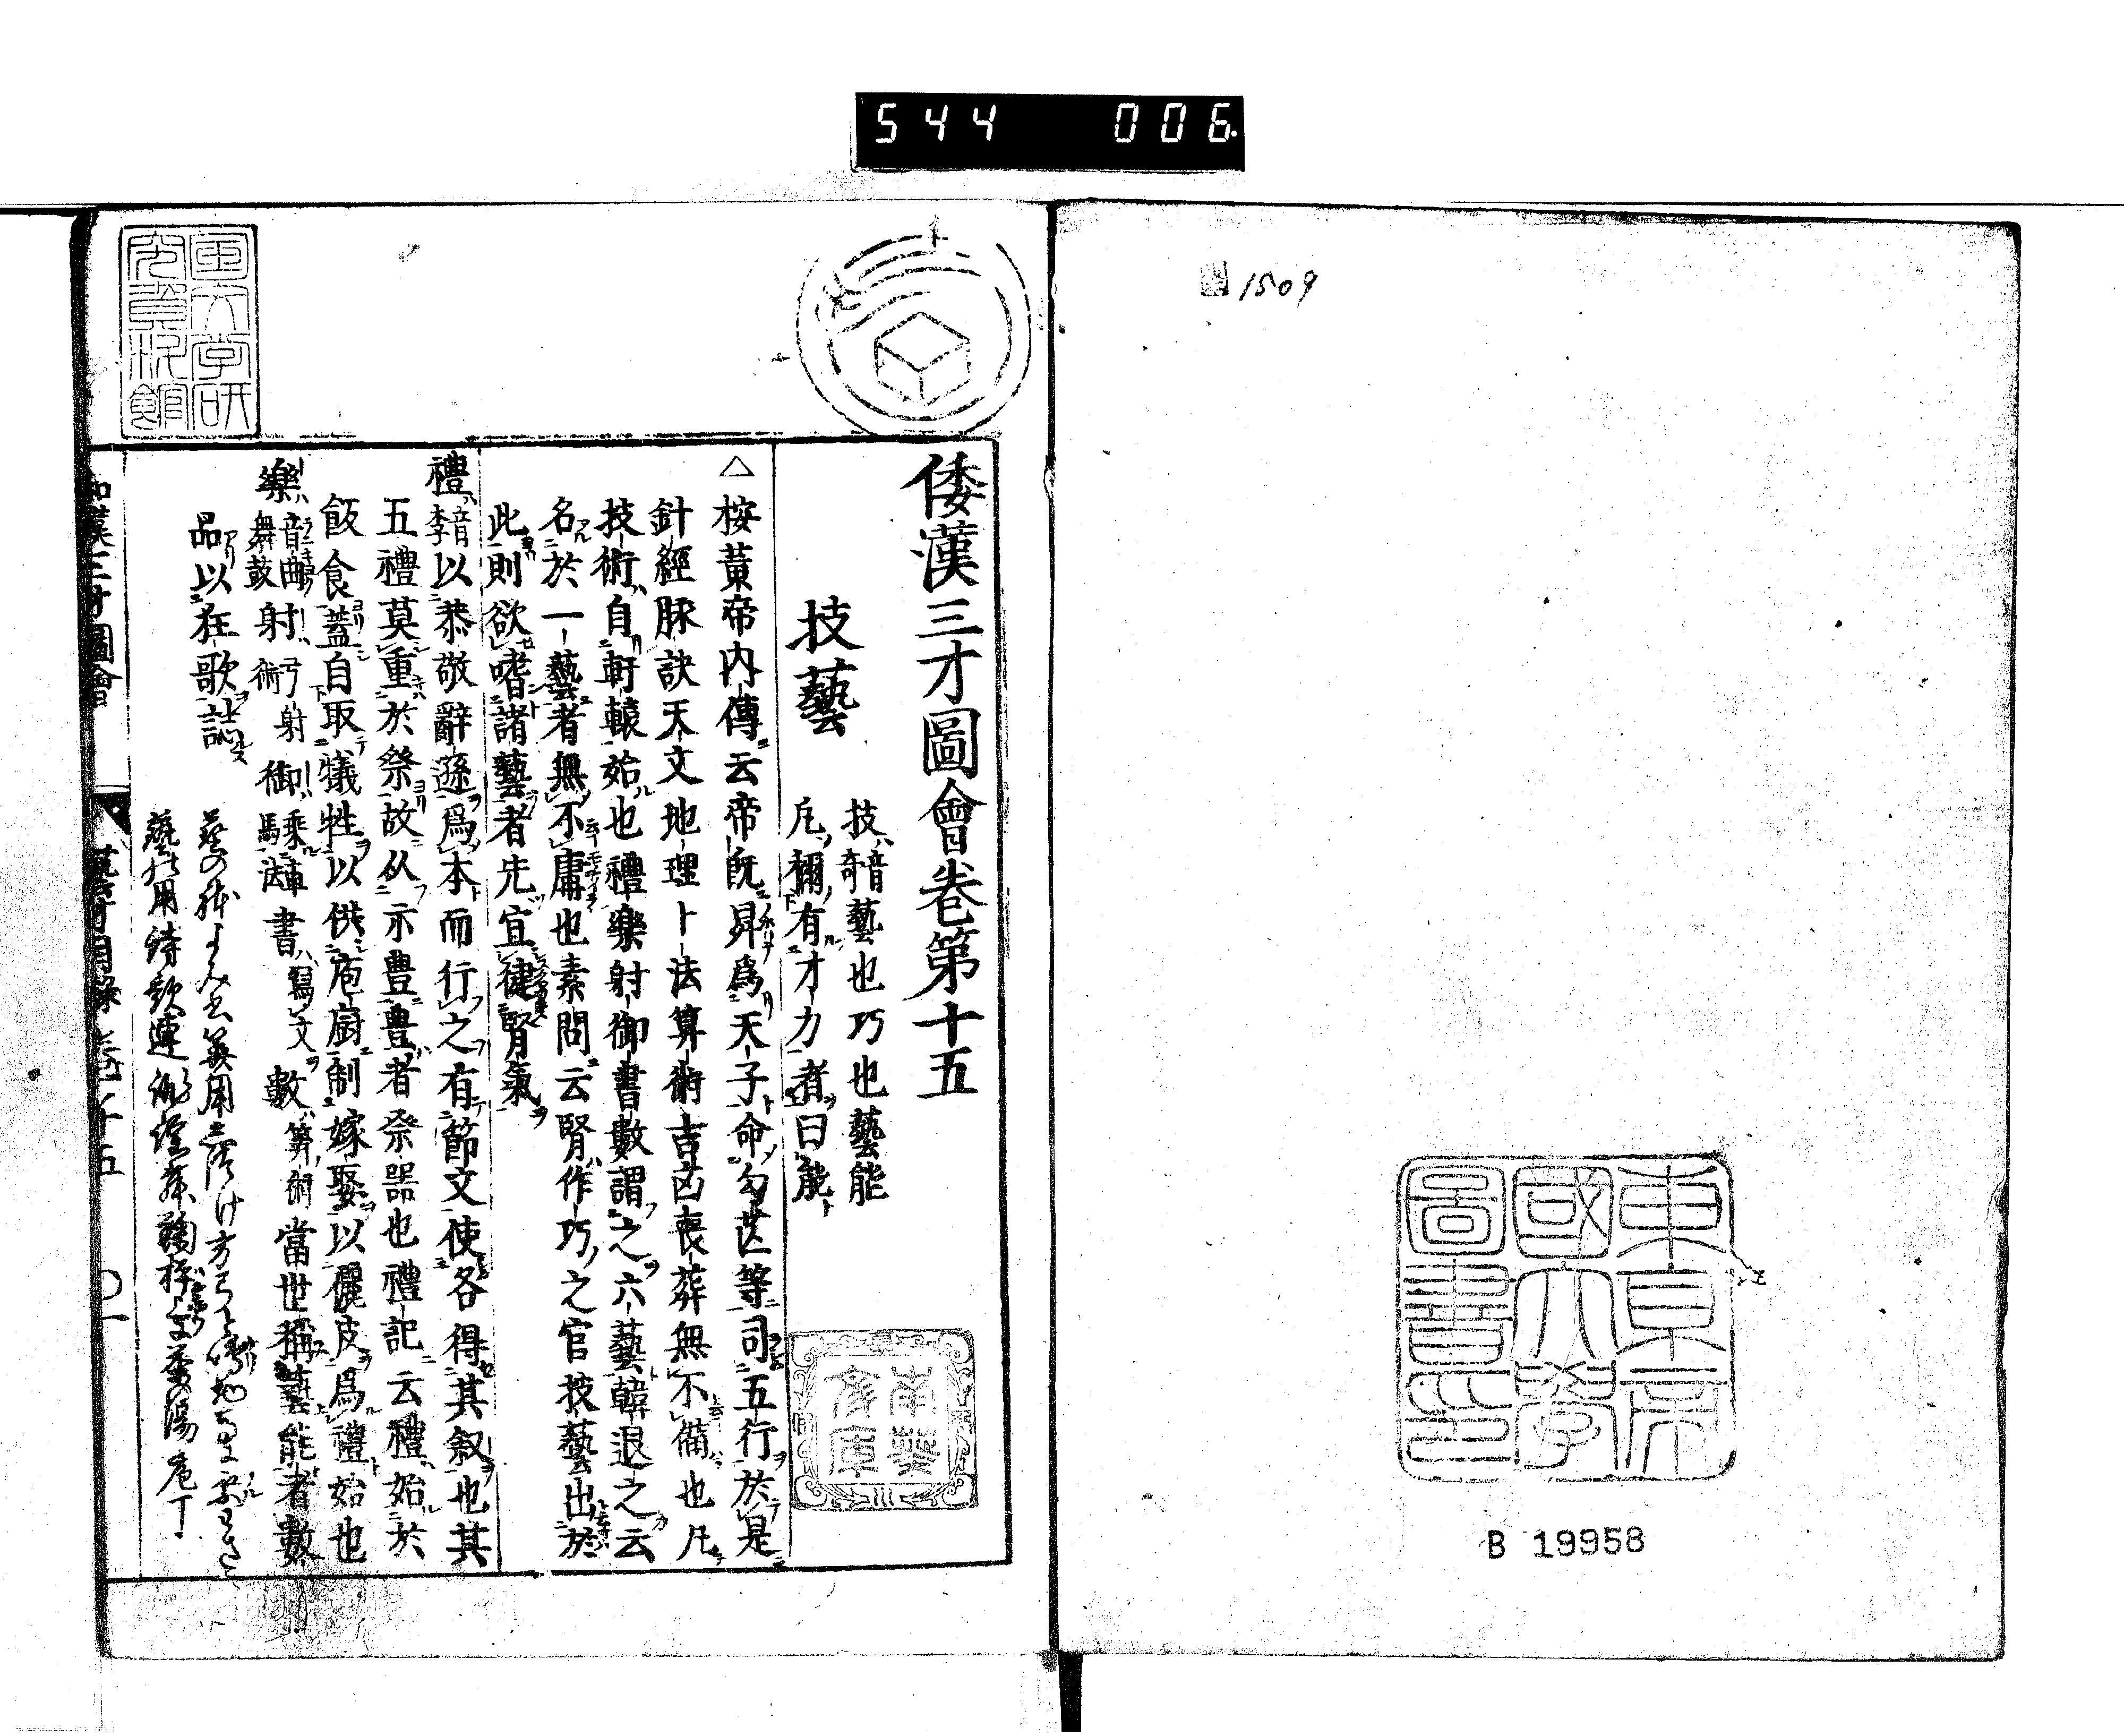 544 006.
1509
東京帝
國大學
圖書印
B 19958
倭漢三才圖會卷第十五
技藝
技音奇藝也巧也藝能
凡禰有才力者曰能
△按黃帝內傳云帝既昇爲天子命勾芒等司五行於是
針經脉訣天文地理卜法算術吉凶喪葬無不備也凡
技術自軒轅始也禮樂射御書數謂之六藝韓退之云
名於一藝者無不庸也素問云腎作巧之官技藝出於
此則欲嗜諸藝者先宜健腎氣
禮音李以恭敬辭遜爲本而行之有節文使各得其叙也其
五禮莫重於祭故从示豊豊者祭器也禮記云禮始於
飯食蓋自取犧牲以供庖廚制嫁娶以儷皮爲禮始也
樂音曲舞鼓射弓射術御乘車驅法書寫文數筭術當世稱藝能者數
品以狂歌誌
藝能用詩歌連俳
茶の湯庖丁
和漢三才圖會
目錄
卷之十五
〇一
南葵
文庫
国文学研
究資料館